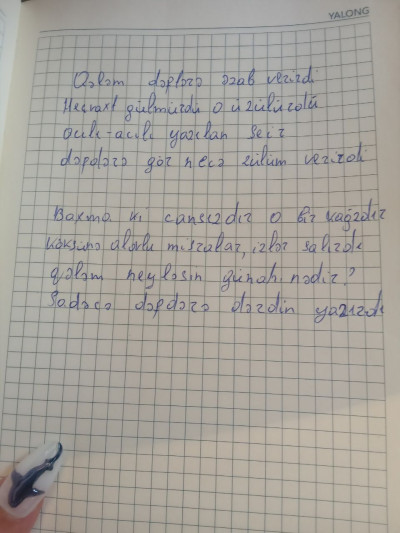 YALONG
Qələm dəptərə əzab verirdi
Heçvaxt gülmürdü o üzülürdü
acılı-acılı yazılan şeir
dəpdərə gör necə zülüm verirdi
Baxma ki cansızdır o bir kağızdır
köksünə alovlu misralar, izlər salırdı
qələm neyləsin günahı nədir?
Sadəcə dəpdərə dərdin yazırdı